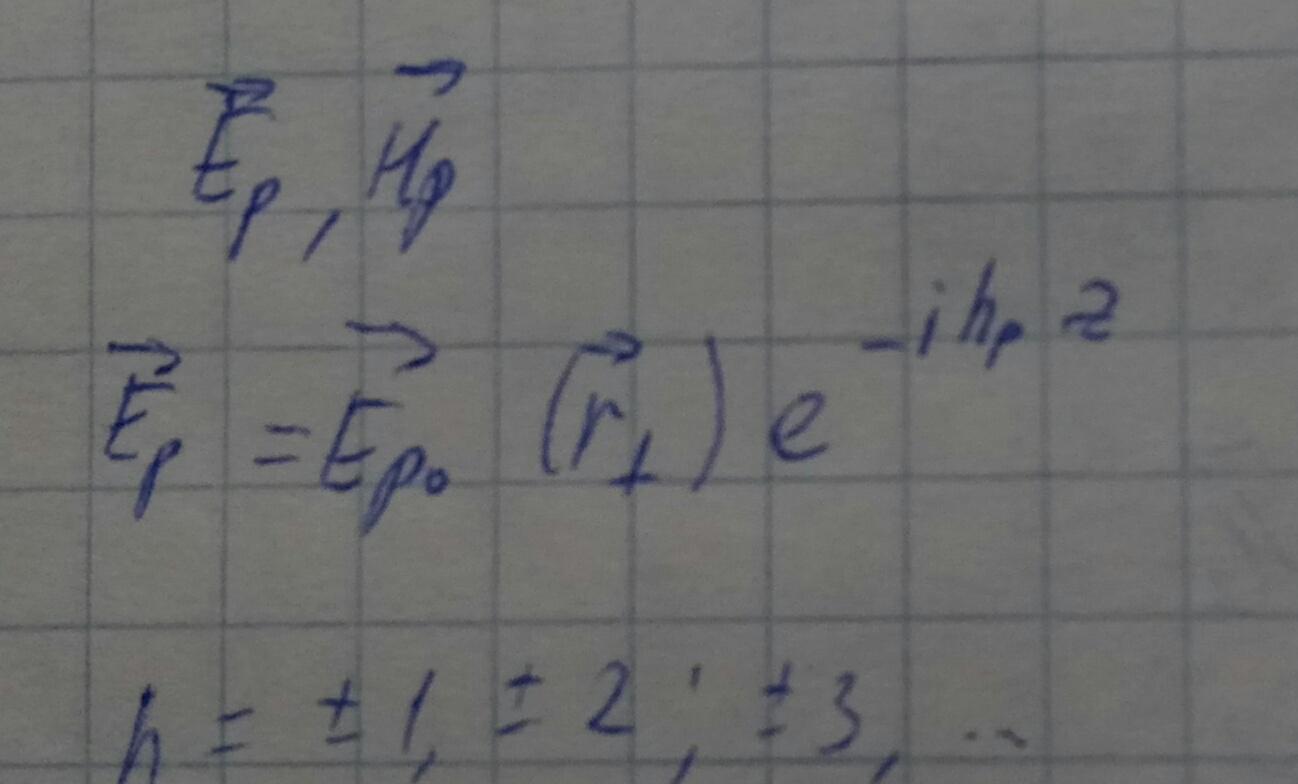 $\vec{E}_p, \vec{H}_p$
$\vec{E}_p = \vec{E}_{p_0} (\vec{r}_\perp) e^{-i h_p z}$
$h = \pm 1, \pm 2; \pm 3, ...$